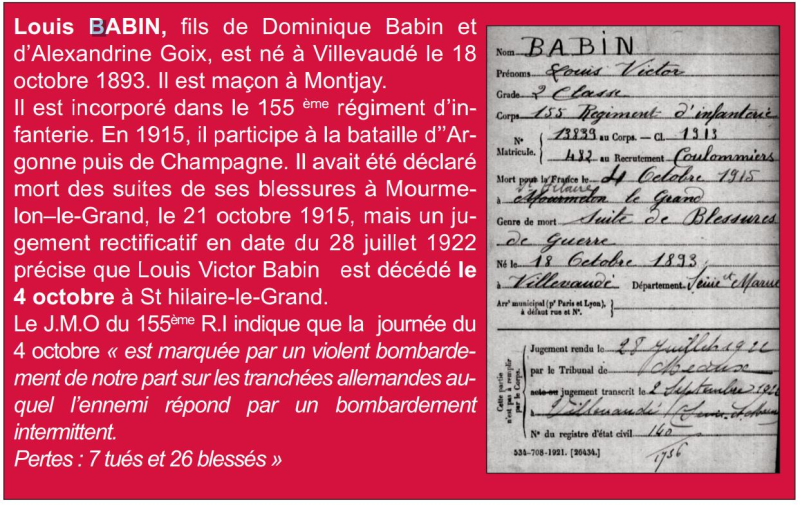 Louis BABIN, fils de Dominique Babin et
d'Alexandrine Goix, est né à Villevaudé le 18
octobre 1893. Il est maçon à Montjay.
Il est incorporé dans le 155 ème régiment d'in-
fanterie. En 1915, il participe à la bataille d''Ar-
gonne puis de Champagne. Il avait été déclaré
mort des suites de ses blessures à Mourme-
lon–le-Grand, le 21 octobre 1915, mais un ju-
gement rectificatif en date du 28 juillet 1922
précise que Louis Victor Babin est décédé le
4 octobre à St hilaire-le-Grand.
Le J.M.O du 155ème R.I indique que la journée du
4 octobre « est marquée par un violent bombarde-
ment de notre part sur les tranchées allemandes au-
quel l'ennemi répond par un bombardement
intermittent.
Pertes : 7 tués et 26 blessés »
Nom BABIN
Prénoms Louis Victor
Grade 2 Classe
Corps 155 Regiment d'infanterie
N° 13839 au Corps. — Cl. 1913
Matricule. 482 au Recrutement Coulommiers
Mort pour la France le 4 Octobre 1915
St Hilaire
à Mourmelon le Grand
Genre de mort Suite de Blessures
de Guerre
Né le 18 Octobre 1893
à Villevaudé Département Seine et Marne
Arrt municipal (pr Paris et Lyon),
à défaut rue et N°.
Cette partie
n'est pas à remplir
par le Corps.
Jugement rendu le 28 Juillet 1922
par le Tribunal de Meaux
acte ou jugement transcrit le 2 Septembre 1922
à Villevaudé
N° du registre d'état civil 140
534-708-1921. [26434.]
1756